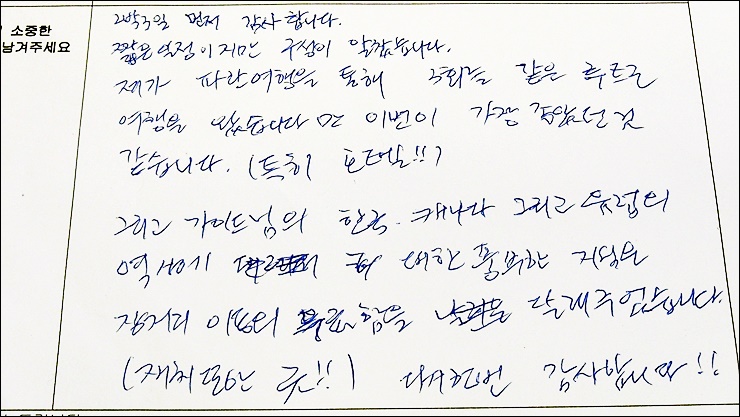 소중한
남겨주세요
2박3일 먼저 감사합니다.
짧은 일정이지만 구성이 알찼습니다.
제가 파란여행을 통해 3회를 같은 루트로
여행을 했습니다만 이번이 가장 좋았던 것
같습니다. (특히 호텔!!)
그리고 가이드님의 한국. 캐나다 그리고 유럽의
역사에 대한 풍부한 지식은
장거리 이동의 을 달래주었습니다.
(재치 또한 굿!!) 다시한번 감사합니다!!